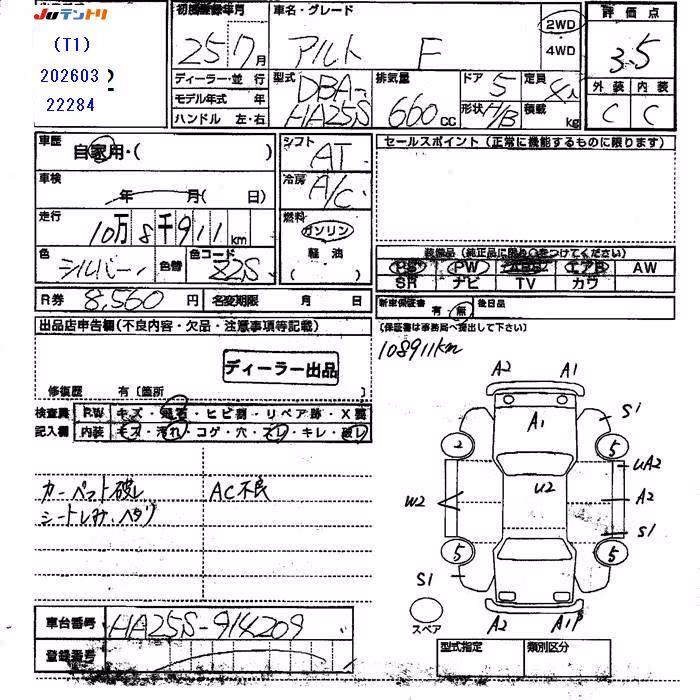 JUテントリ
(T1)
202603
22284
初度登録年月
25 年 7 月
車名・グレード
アルト F
2WD
4WD
評価点
3.5
外装 内装
C C
ディーラー・並行
モデル年式 年
ハンドル 左・右
型式
DBA-
HA25S
排気量
660 cc
ドア 5
形状 H/B
定員 4人
積載 kg
車歴
自家用・( )
車検
年 月( 日)
走行
10万8千911km
色
シルバー
色替
色コード
Z2S
シフト
AT
冷房
A/C
燃料
ガソリン
軽油
( )
セールスポイント (正常に機能するものに限ります)
装備品 (純正品に限り○をつけてください)
PS PW ABS エアB AW
SR ナビ TV カワ
R券 8,560 円
名変期限 月 日
新車保証書 有 無
後日品
(保証書は事務局へ提出して下さい)
出品店申告欄(不良内容・欠品・注意事項等記載)
ディーラー出品
修復歴 有〔箇所
108911km
検査員 F.W キズ・飛石・ヒビ割・リペア跡・X要
記入欄 内装 キズ・汚れ・コゲ・穴・スレ・キレ・破レ
カーペット破レ
シートしみ、ヘタリ
AC不良
A2 A1
S1
A1
2
5
UA2
U2
W2
A2
S1
5
5
S1
スペア
A2
A1P
車台番号 HA25S-914209
登録番号
型式指定
類別区分